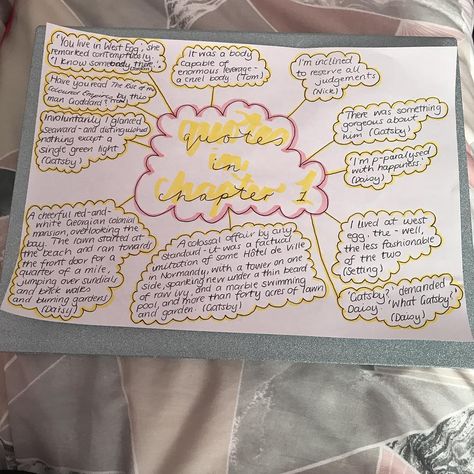 'You live in West Egg', she
remarked contemptuously.
'I know somebody there.'
(Jordan)
It was a body
capable of
enormous leverage -
a cruel body. (Tom)
I'm inclined
to reserve all
judgements
(Nick)
Have you read 'The Rise of the
Coloured Empires' by this
man Goddard? (Tom)
There was something
gorgeous about
him (Gatsby)
Involuntarily I glanced
seaward - and distinguished
nothing except a
single green light
(Gatsby)
quotes
in
chapter 1
'I'm p-paralysed
with happiness.'
(Daisy)
A cheerful red-and-
white Georgian colonial
mansion, overlooking the
bay. The lawn started at
the beach and ran towards
the front door for a
quarter of a mile,
jumping over sundials
and brick walks
and burning gardens
(Daisy)
A colossal affair by any
standard - it was a factual
imitation of some Hôtel de Ville
in Normandy, with a tower on one
side, spanking new under a thin beard
of raw ivy, and a marble swimming
pool, and more than forty acres of lawn
and garden. (Gatsby)
I lived at west
egg, the - well,
the less fashionable
of the two
(Setting)
'Gatsby?' demanded
Daisy. 'What Gatsby?'
(Daisy)